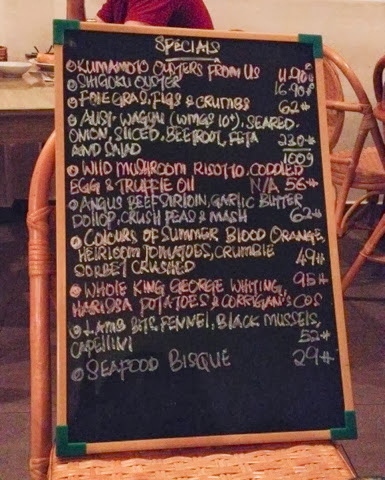 SPECIALS
KUMAMOTO OYSTERS FROM US 11.90++
SHIGOKU OYSTER 16.90++
FOIE GRAS, FIGS & CRUMBS 62++
AUST-WAGYU (WMGS 10+), SEARED
ONION, SLICED, BEETROOT, FETA 230++
AND SALAD 1609
WILD MUSHROOM RISOTTO, CODDLED
EGG & TRUFFLE OIL N/A 56++
ANGUS BEEF SIRLOIN, GARLIC BUTTER
DOLLOP, CRUSH PEAS & MASH 62++
COLOURS OF SUMMER BLOOD ORANGE,
HEIRLOOM TOMATOES, CRUMBLE 49++
SORBET CRUSHED
WHOLE KING GEORGE WHITING, 95++
HARISSA POTATOES & CORRIGAN'S COS
LAMB BITS, FENNEL, BLACK MUSSELS,
52++
CAPELLINI
SEAFOOD BISQUE 29++